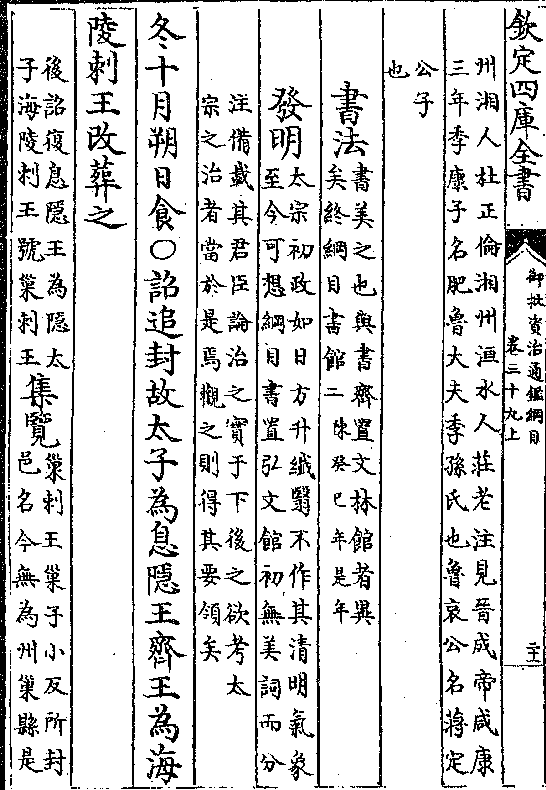 欽定四庫全書
御批資治通鑑綱目
卷三十九上
二十一
州湘人杜正倫湘州洹水人莊老注見晉成帝咸康
三年季康子名肥魯大夫季孫氏也魯哀公名蔣定
公子
也
書法
書美之也與書齊置文林館者異
矣終綱目書館二陳癸巳年是年
發明
太宗初政如日方升纖翳不作其清明氣象
至今可想綱目書置弘文館初無美詞而分
注備載其君臣論治之實于下後之欲考太
宗之治者當於是焉觀之則得其要領矣
冬十月朔日食○詔追封故太子為息隱王齊王為海
陵剌王改葬之
後詔復息隱王為隱太
子海陵剌王號巢剌王
集覽
巢剌王巢子小反所封
邑名今無為州巢縣是